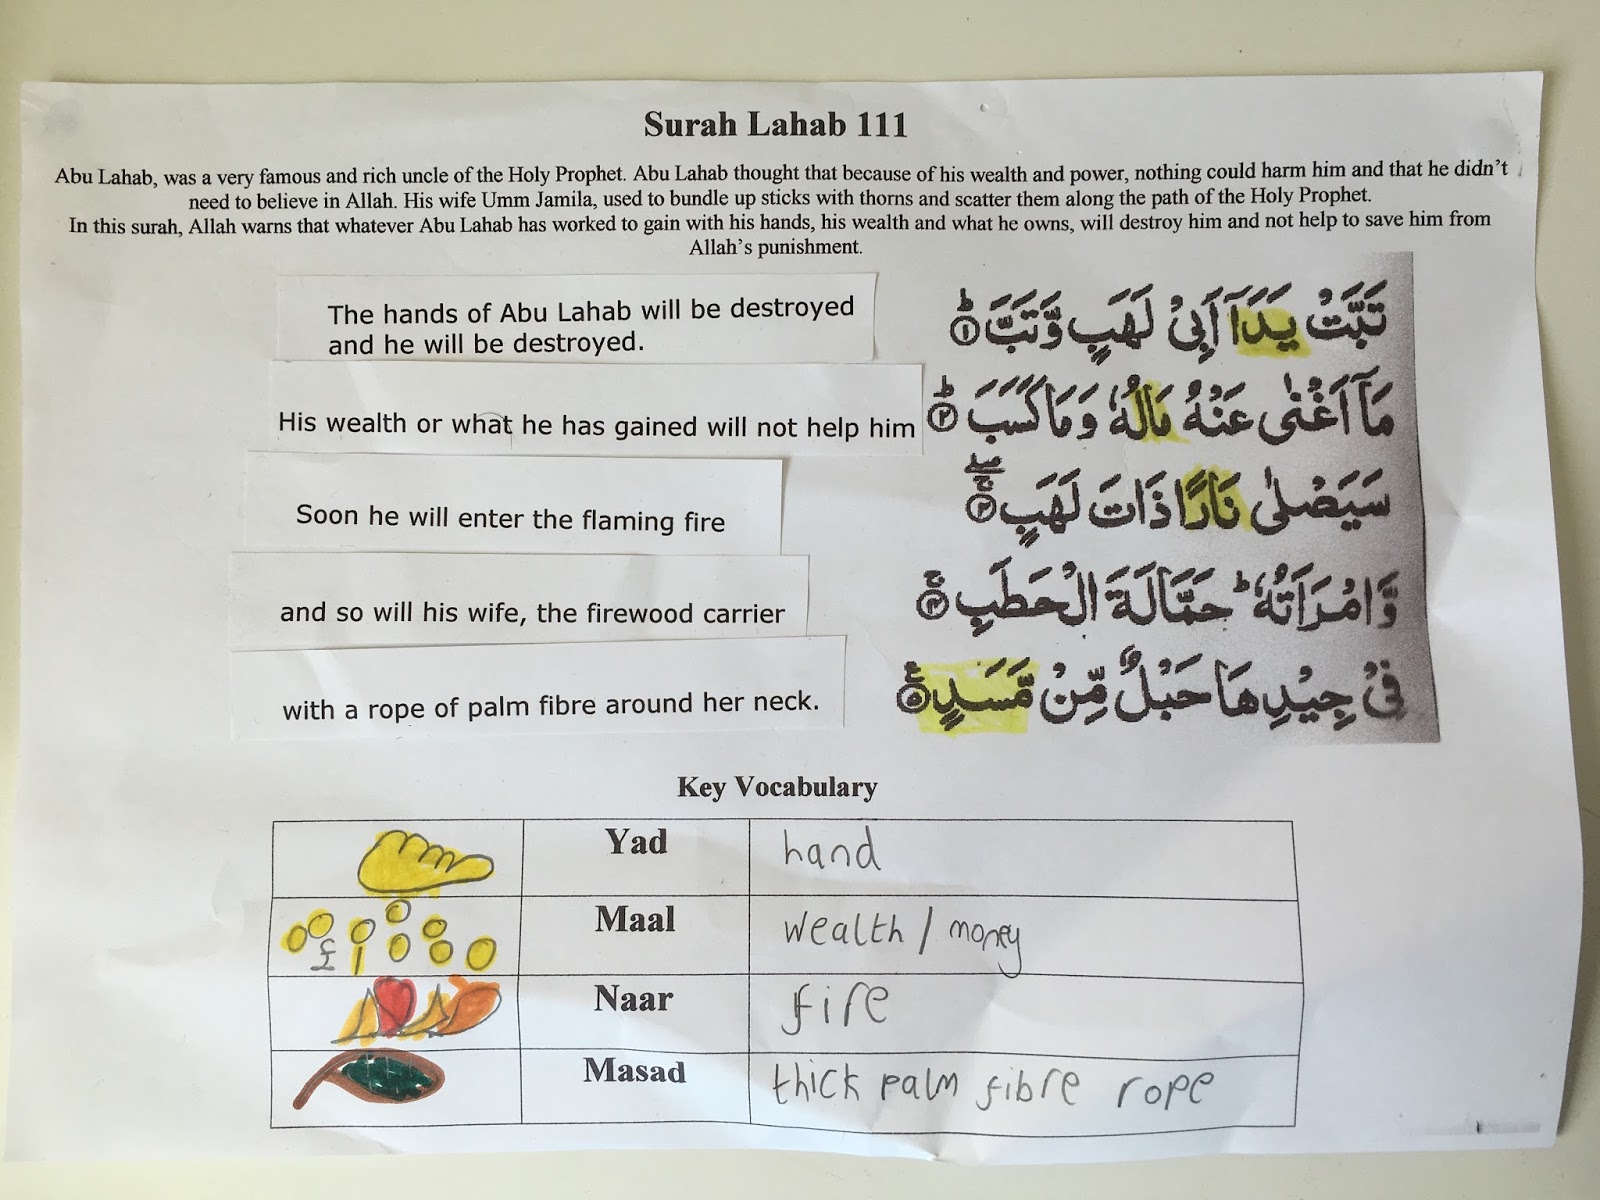 Surah Lahab 111
Abu Lahab, was a very famous and rich uncle of the Holy Prophet. Abu Lahab thought that because of his wealth and power, nothing could harm him and that he didn't
need to believe in Allah. His wife Umm Jamila, used to bundle up sticks with thorns and scatter them along the path of the Holy Prophet.
In this surah, Allah warns that whatever Abu Lahab has worked to gain with his hands, his wealth and what he owns, will destroy him and not help to save him from
Allah's punishment.
The hands of Abu Lahab will be destroyed
and he will be destroyed.
تَبَّتْ يَدَآ اَبِىْ لَهَبٍ وَّتَبَّ ؕ‏ ﴿۱﴾
His wealth or what he has gained will not help him
مَاۤ اَغْنٰى عَنْهُ مَالُهٗ وَمَا كَسَبَ ؕ‏ ﴿۲﴾
Soon he will enter the flaming fire
سَيَصْلٰى نَارًا ذَاتَ لَهَبٍ ﴿۳﴾
and so will his wife, the firewood carrier
وَّامْرَاَتُهٗ ؕ حَمَّالَةَ الْحَطَبِ ۚ‏ ﴿۴﴾
with a rope of palm fibre around her neck.
فِىْ جِيْدِهَا حَبْلٌ مِّنْ مَّسَدٍ ﴿۵﴾
Key Vocabulary
Yad hand
£1 Maal wealth / money
Naar fire
Masad thick palm fibre rope